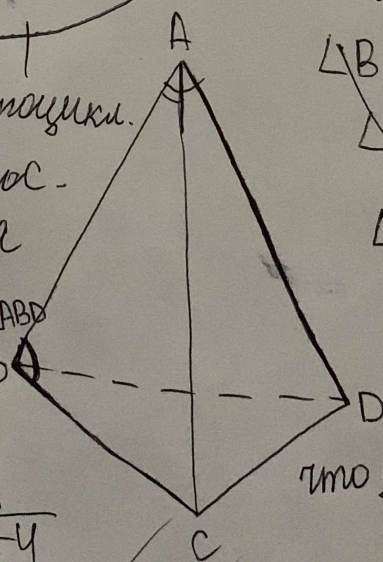 A
∆B
тоцикл.
ос.
ABD
D
что
-4
C